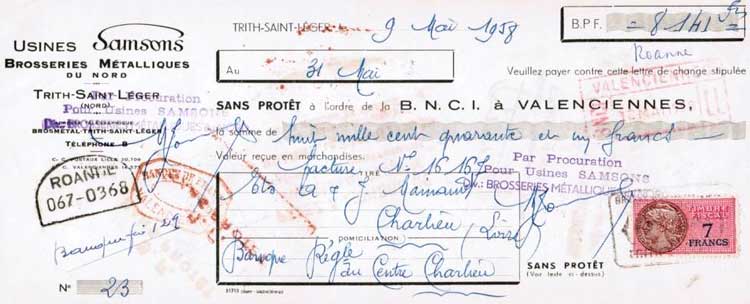 USINES Samsons
BROSSERIES MÉTALLIQUES
DU NORD
TRITH-SAINT-LÉGER
(NORD)
BROSMÉTAL-TRITH-SAINT-LÉGER
TÉLÉPHONE 8
Par Procuration
Pour Usines SAMSONS
ROANNE
067-0368
Nº 23
TRITH-SAINT-LÉGER, 9 Mai 1958
B.P.F. = 8141 =
Au 31 Mai
Roanne
Veuillez payer contre cette lettre de change stipulée
SANS PROTÊT à l'ordre de la B.N.C.I. à VALENCIENNES,
VALENCIENNES
la somme de huit mille cent quarante et un francs
Valeur reçue en marchandises.
facture Nº 16.167
Par Procuration
Pour Usines SAMSONS
Div.: BROSSERIES MÉTALLIQUES
Charlieu
(Loire)
DOMICILIATION
Banque Régle
du Centre Charlieu
SANS PROTÊT
(Voir texte ci-dessus)
TIMBRE
FISCAL
7
FRANCS